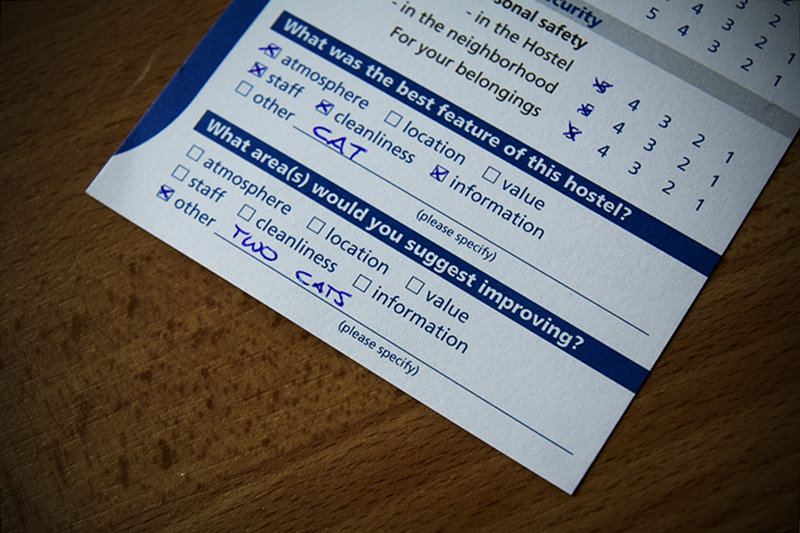 curity
5 4 3 2 1
sonal safety
- in the Hostel 4 3 2 1
- in the neighborhood 4 3 2 1
For your belongings 4 3 2 1
What was the best feature of this hostel?
atmosphere location value
staff cleanliness information
other CAT
(please specify)
What area(s) would you suggest improving?
atmosphere location value
staff cleanliness information
other TWO CATS
(please specify)